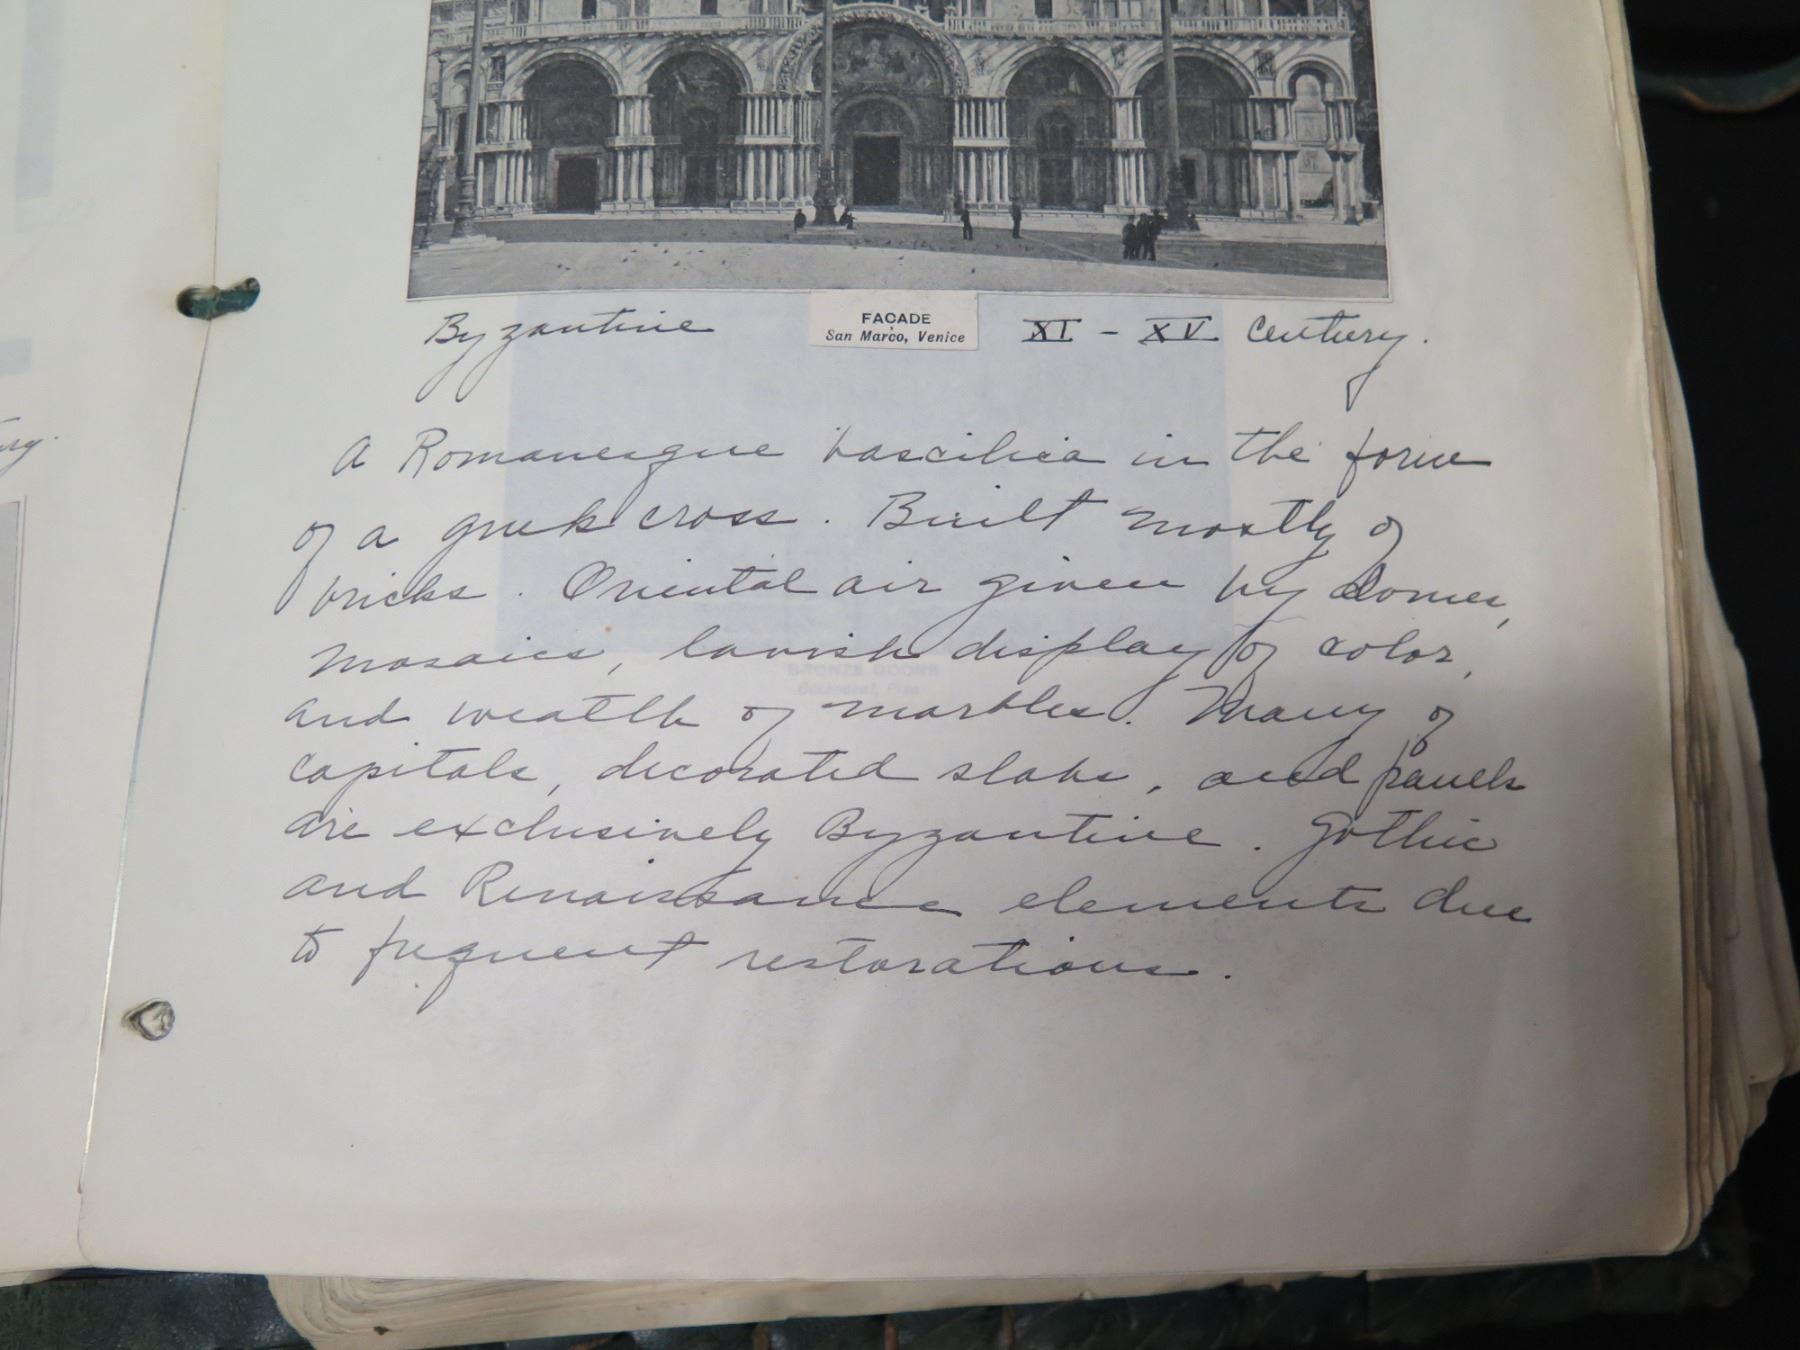 Byzantine FAÇADE XI - XV Century.
San Marco, Venice
A Romanesque bascilica in the form
of a greek cross. Built mostly of
bricks. Oriental air given by domes,
mosaics, lavish display of color,
and wealth of marbles. Many of
capitals, decorated slabs, and panels
are exclusively Byzantine. Gothic
and Renaissance elements due
to frequent restorations.
BRONZE DOORS
Cathedral, Pisa